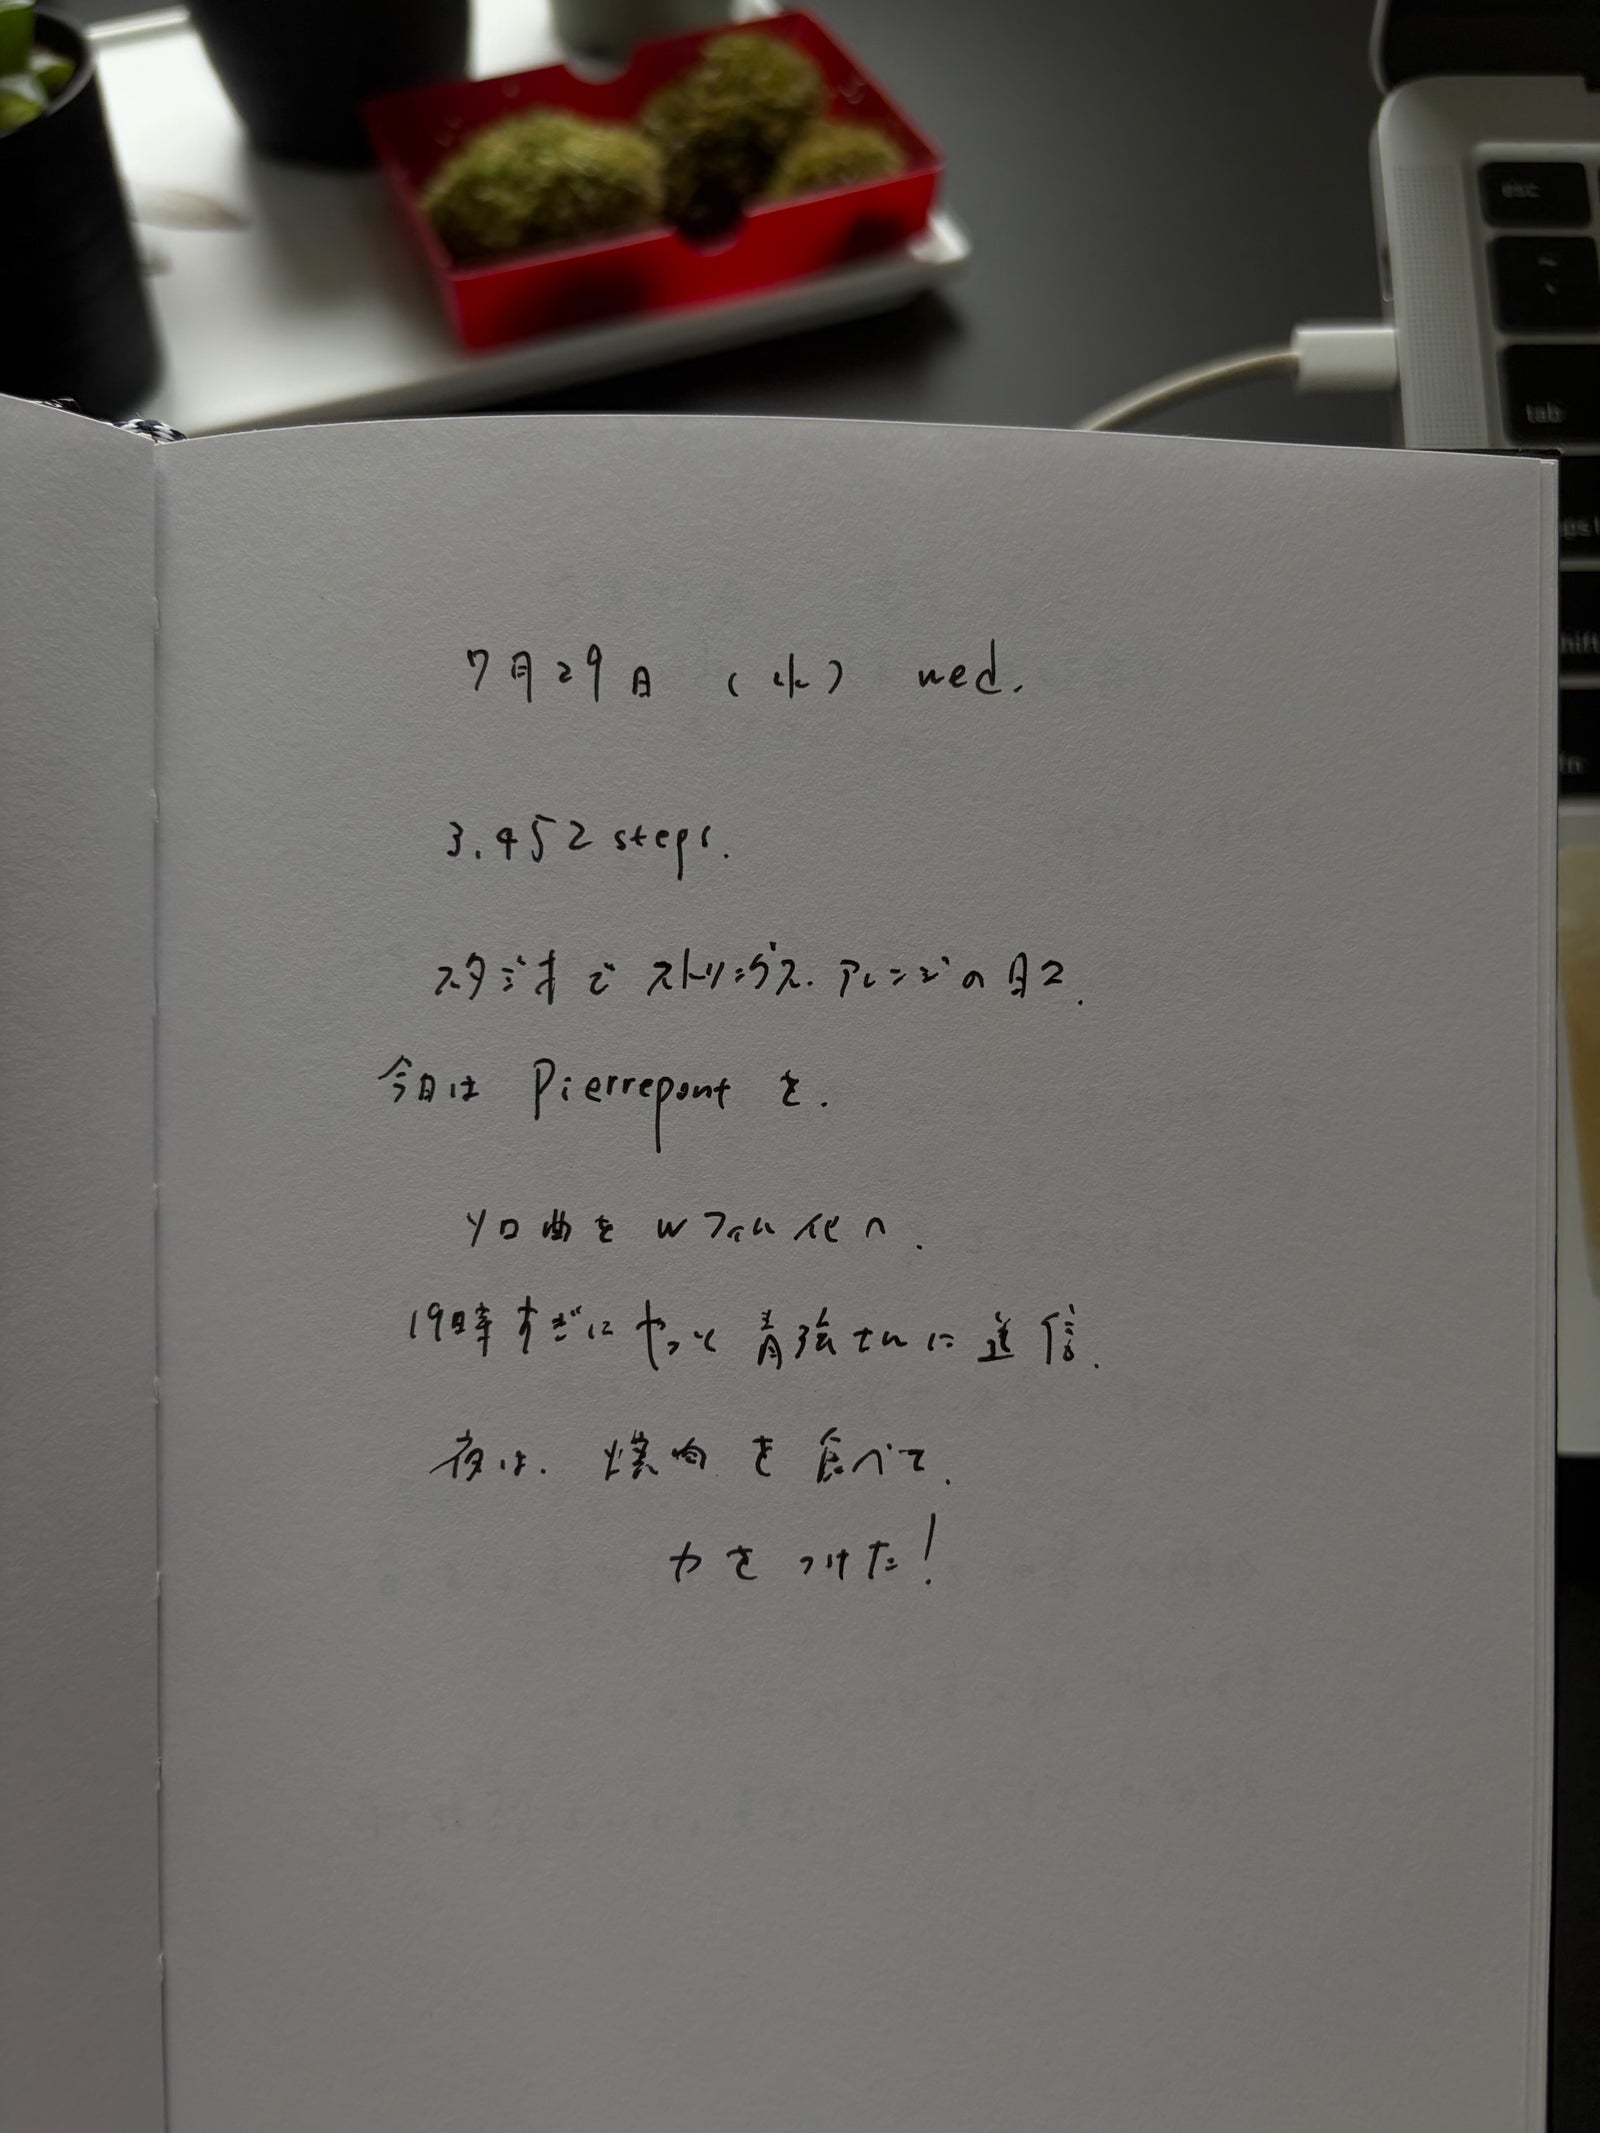 esc
tab
7月29日 (水) wed.
3.452 steps.
スタジオで ストリングス.アレンジの日2.
今日は Pierrepont を.
ソロ曲を Wファイル化へ.
19時すぎにやっと 青弦さんに送信.
夜は. 焼肉を食べて.
力をつけた!